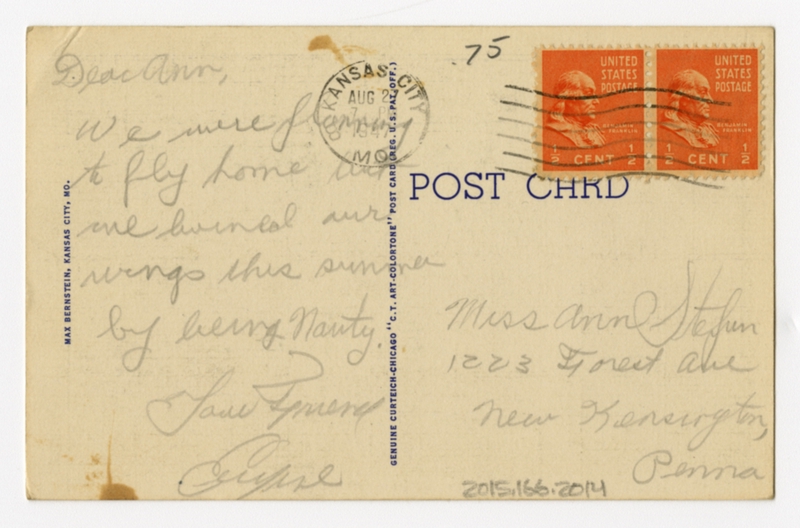 Dear Ann,
We were planning
to fly home but
we burned our
wings this summer
by being Nauty.
Your Friend
MAX BERNSTEIN, KANSAS CITY, MO.
GENUINE CURTEICH-CHICAGO "C.T. ART-COLORTONE" POST CARD (REG. U.S. PAT. OFF.)
.75
KANSAS CITY
AUG 2
1947
MO.
UNITED
STATES
POSTAGE
BENJAMIN
FRANKLIN
1/2 CENT 1/2
UNITED
STATES
POSTAGE
BENJAMIN
FRANKLIN
1/2 CENT 1/2
POST CARD
Miss Ann
1223 Forest Ave
New Kensington,
Penna
2015.166.2014